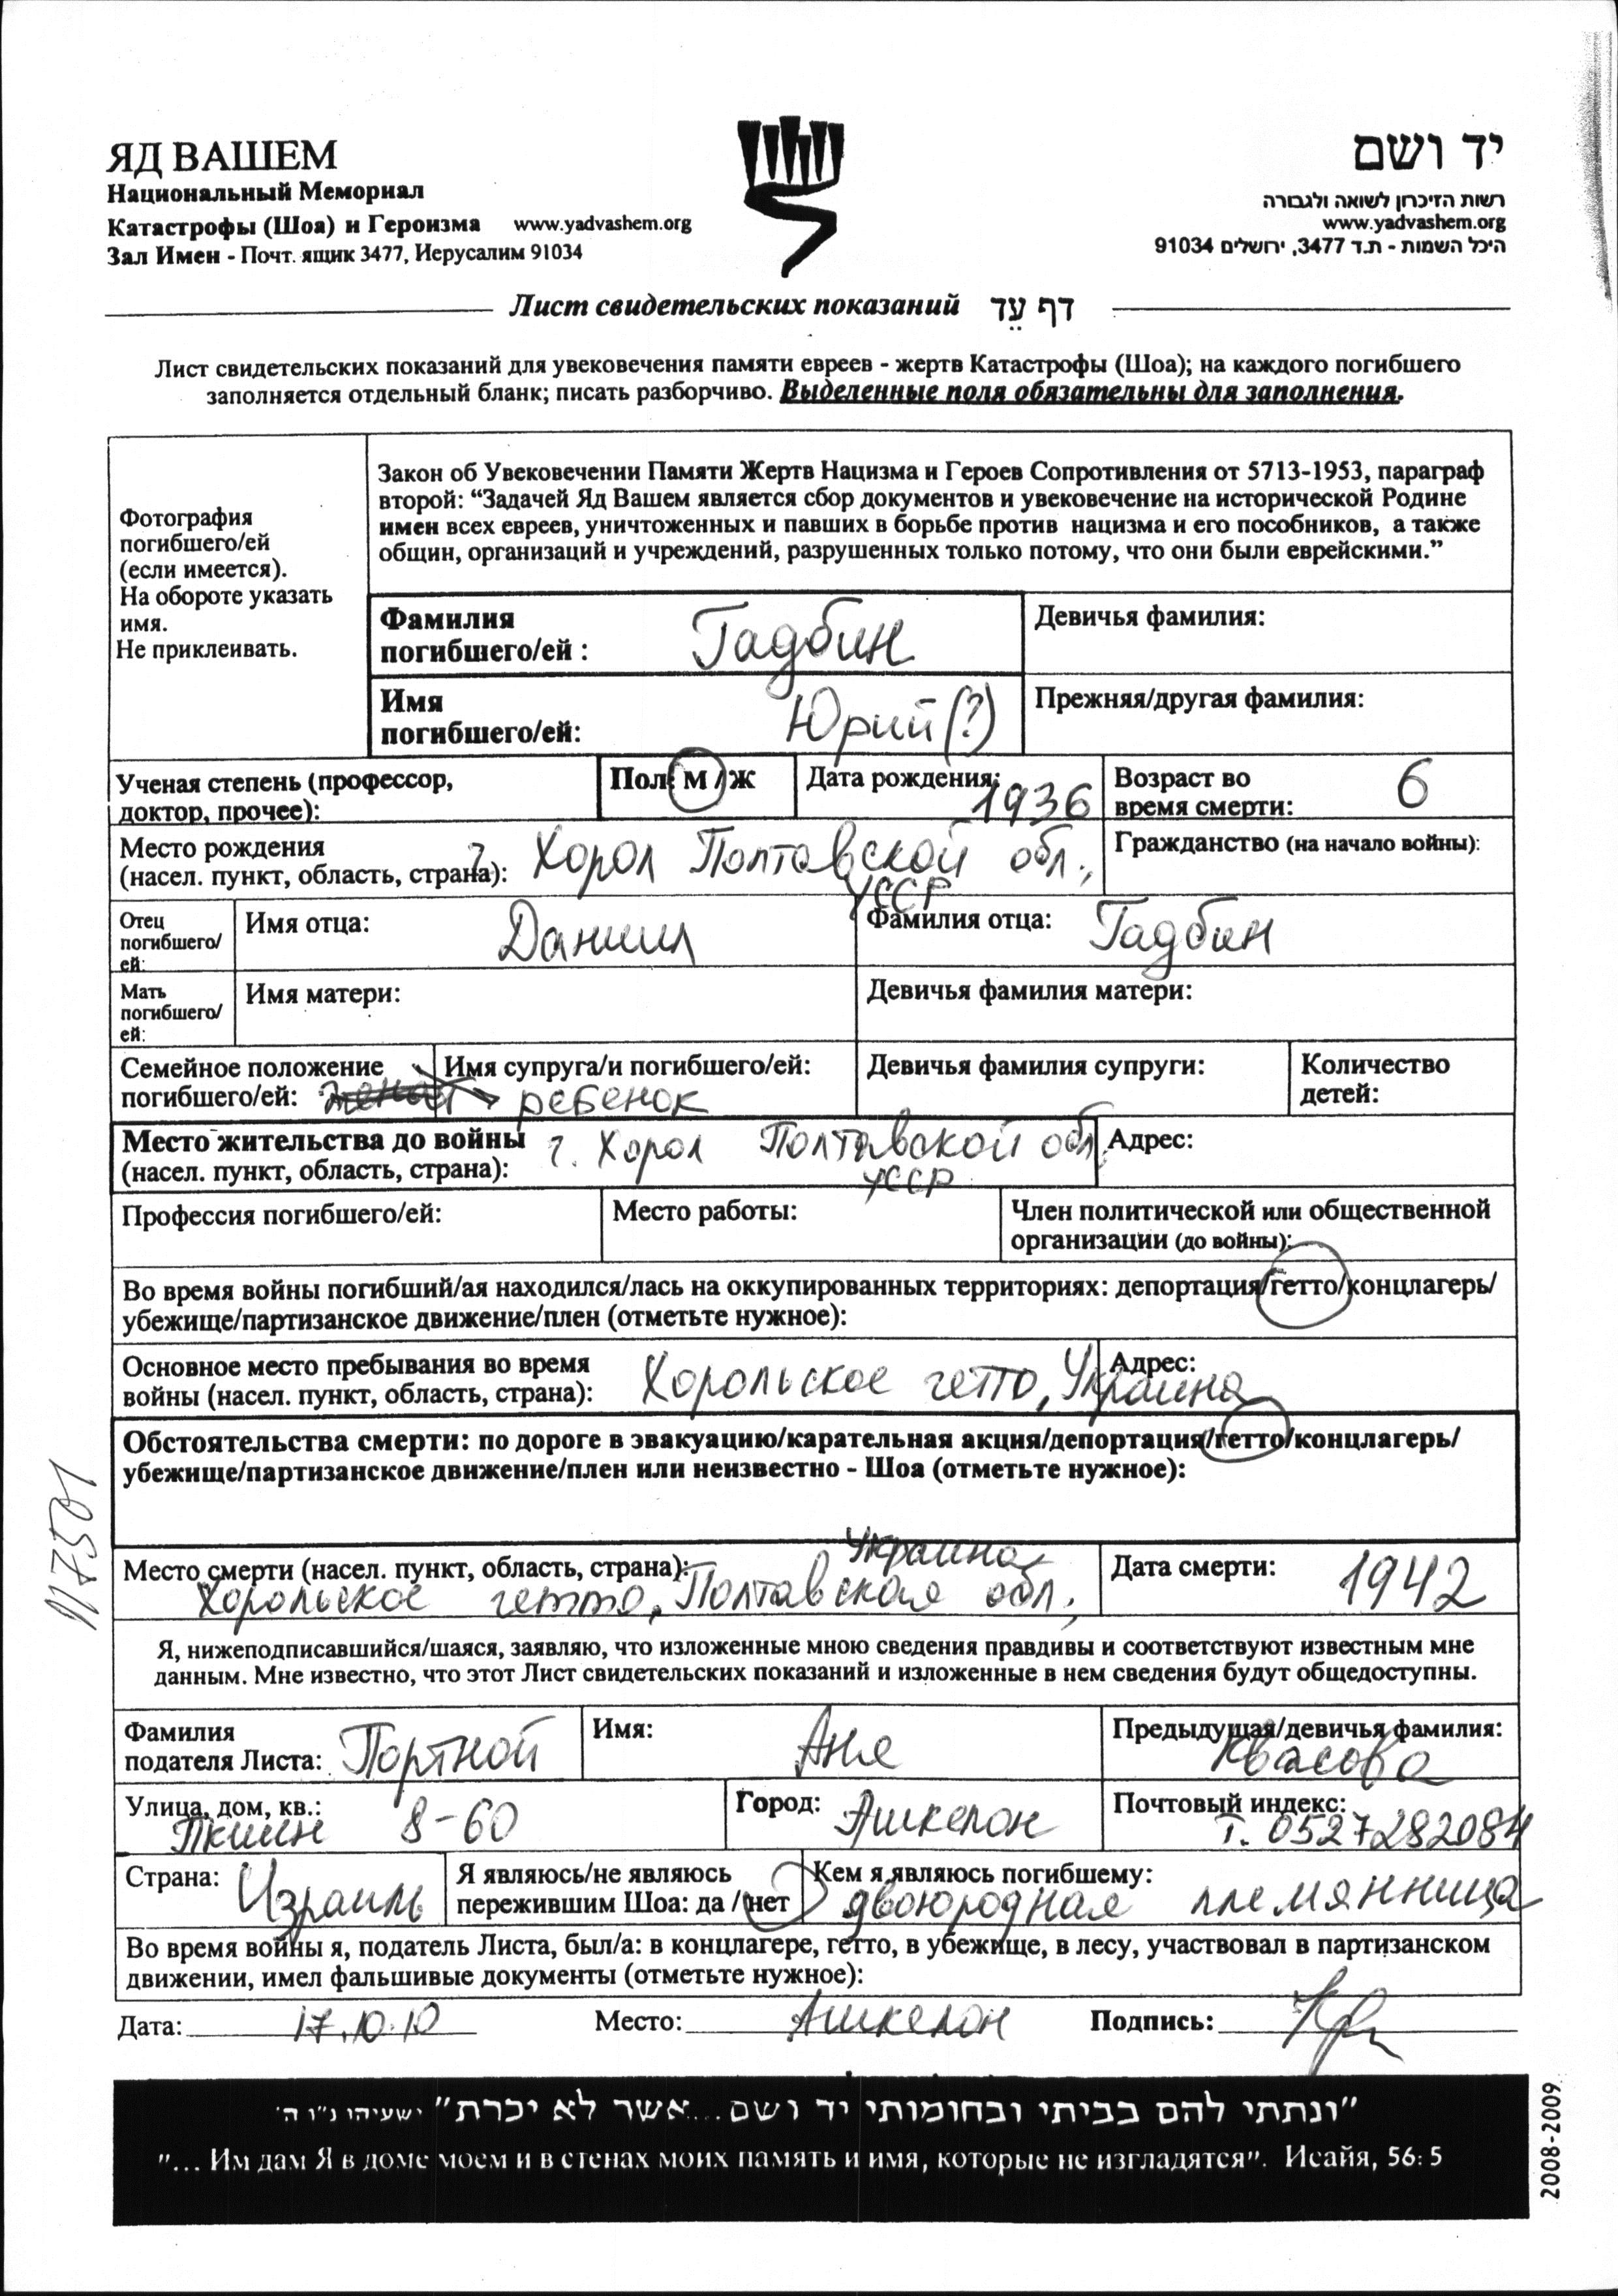 ЯД ВАШЕМ
Национальный Мемориал
Катастрофы (Шоа) и Героизма www.yadvashem.org
Зал Имен - Почт. ящик 3477, Иерусалим 91034
יד ושם
רשות הזיכרון לשואה ולגבורה
www.yadvashem.org
היכל השמות - ת.ד 3477, ירושלים 91034
Лист свидетельских показаний דף עֵד
Лист свидетельских показаний для увековечения памяти евреев - жертв Катастрофы (Шоа); на каждого погибшего
заполняется отдельный бланк; писать разборчиво. Выделенные поля обязательны для заполнения.
Фотография
погибшего/ей
(если имеется).
На обороте указать
имя.
Не приклеивать.
Закон об Увековечении Памяти Жертв Нацизма и Героев Сопротивления от 5713-1953, параграф
второй: “Задачей Яд Вашем является сбор документов и увековечение на исторической Родине
имен всех евреев, уничтоженных и павших в борьбе против нацизма и его пособников, а также
общин, организаций и учреждений, разрушенных только потому, что они были еврейскими.”
Фамилия
погибшего/ей : Гадбин
Девичья фамилия:
Имя
погибшего/ей: Юрий (?)
Прежняя/другая фамилия:
Ученая степень (профессор,
доктор, прочее):
Пол: М / Ж
Дата рождения: 1936
Возраст во
время смерти: 6
Место рождения
(насел. пункт, область, страна): г. Хорол Полтавской обл.,
УССР
Гражданство (на начало войны):
Отец
погибшего/
ей:
Имя отца: Даниил
Фамилия отца: Гадбин
Мать
погибшего/
ей:
Имя матери:
Девичья фамилия матери:
Семейное положение
погибшего/ей: ребенок
Имя супруга/и погибшего/ей:
Девичья фамилия супруги:
Количество
детей:
Место жительства до войны
(насел. пункт, область, страна): г. Хорол Полтавской обл,
УССР
Адрес:
Профессия погибшего/ей:
Место работы:
Член политической или общественной
организации (до войны):
Во время войны погибший/ая находился/лась на оккупированных территориях: депортация/гетто/концлагерь/
убежище/партизанское движение/плен (отметьте нужное):
Основное место пребывания во время
войны (насел. пункт, область, страна): Хорольское гетто, Украина
Адрес:
Обстоятельства смерти: по дороге в эвакуацию/карательная акция/депортация/гетто/концлагерь/
убежище/партизанское движение/плен или неизвестно - Шоа (отметьте нужное):
117501
Место смерти (насел. пункт, область, страна): Украина
Хорольское гетто, Полтавская обл,
Дата смерти: 1942
Я, нижеподписавшийся/шаяся, заявляю, что изложенные мною сведения правдивы и соответствуют известным мне
данным. Мне известно, что этот Лист свидетельских показаний и изложенные в нем сведения будут общедоступны.
Фамилия
подателя Листа: Портной
Имя: Аня
Предыдущая/девичья фамилия:
Квасова
Улица, дом, кв.:
Пкиин 8-60
Город: Ашкелон
Почтовый индекс:
Т. 0527282084
Страна: Израиль
Я являюсь/не являюсь
пережившим Шоа: да / нет
Кем я являюсь погибшему:
двоюродная племянница
Во время войны я, податель Листа, был/а: в концлагере, гетто, в убежище, в лесу, участвовал в партизанском
движении, имел фальшивые документы (отметьте нужное):
Дата: 17.10.10 Место: Ашкелон Подпись:
"ונתתי להם בביתי ובחומותי יד ושם...אשר לא יכרת" ישעיהו נ"ו ה'
"... Им дам Я в доме моем и в стенах моих память и имя, которые не изгладятся". Исайя, 56: 5
2008-2009